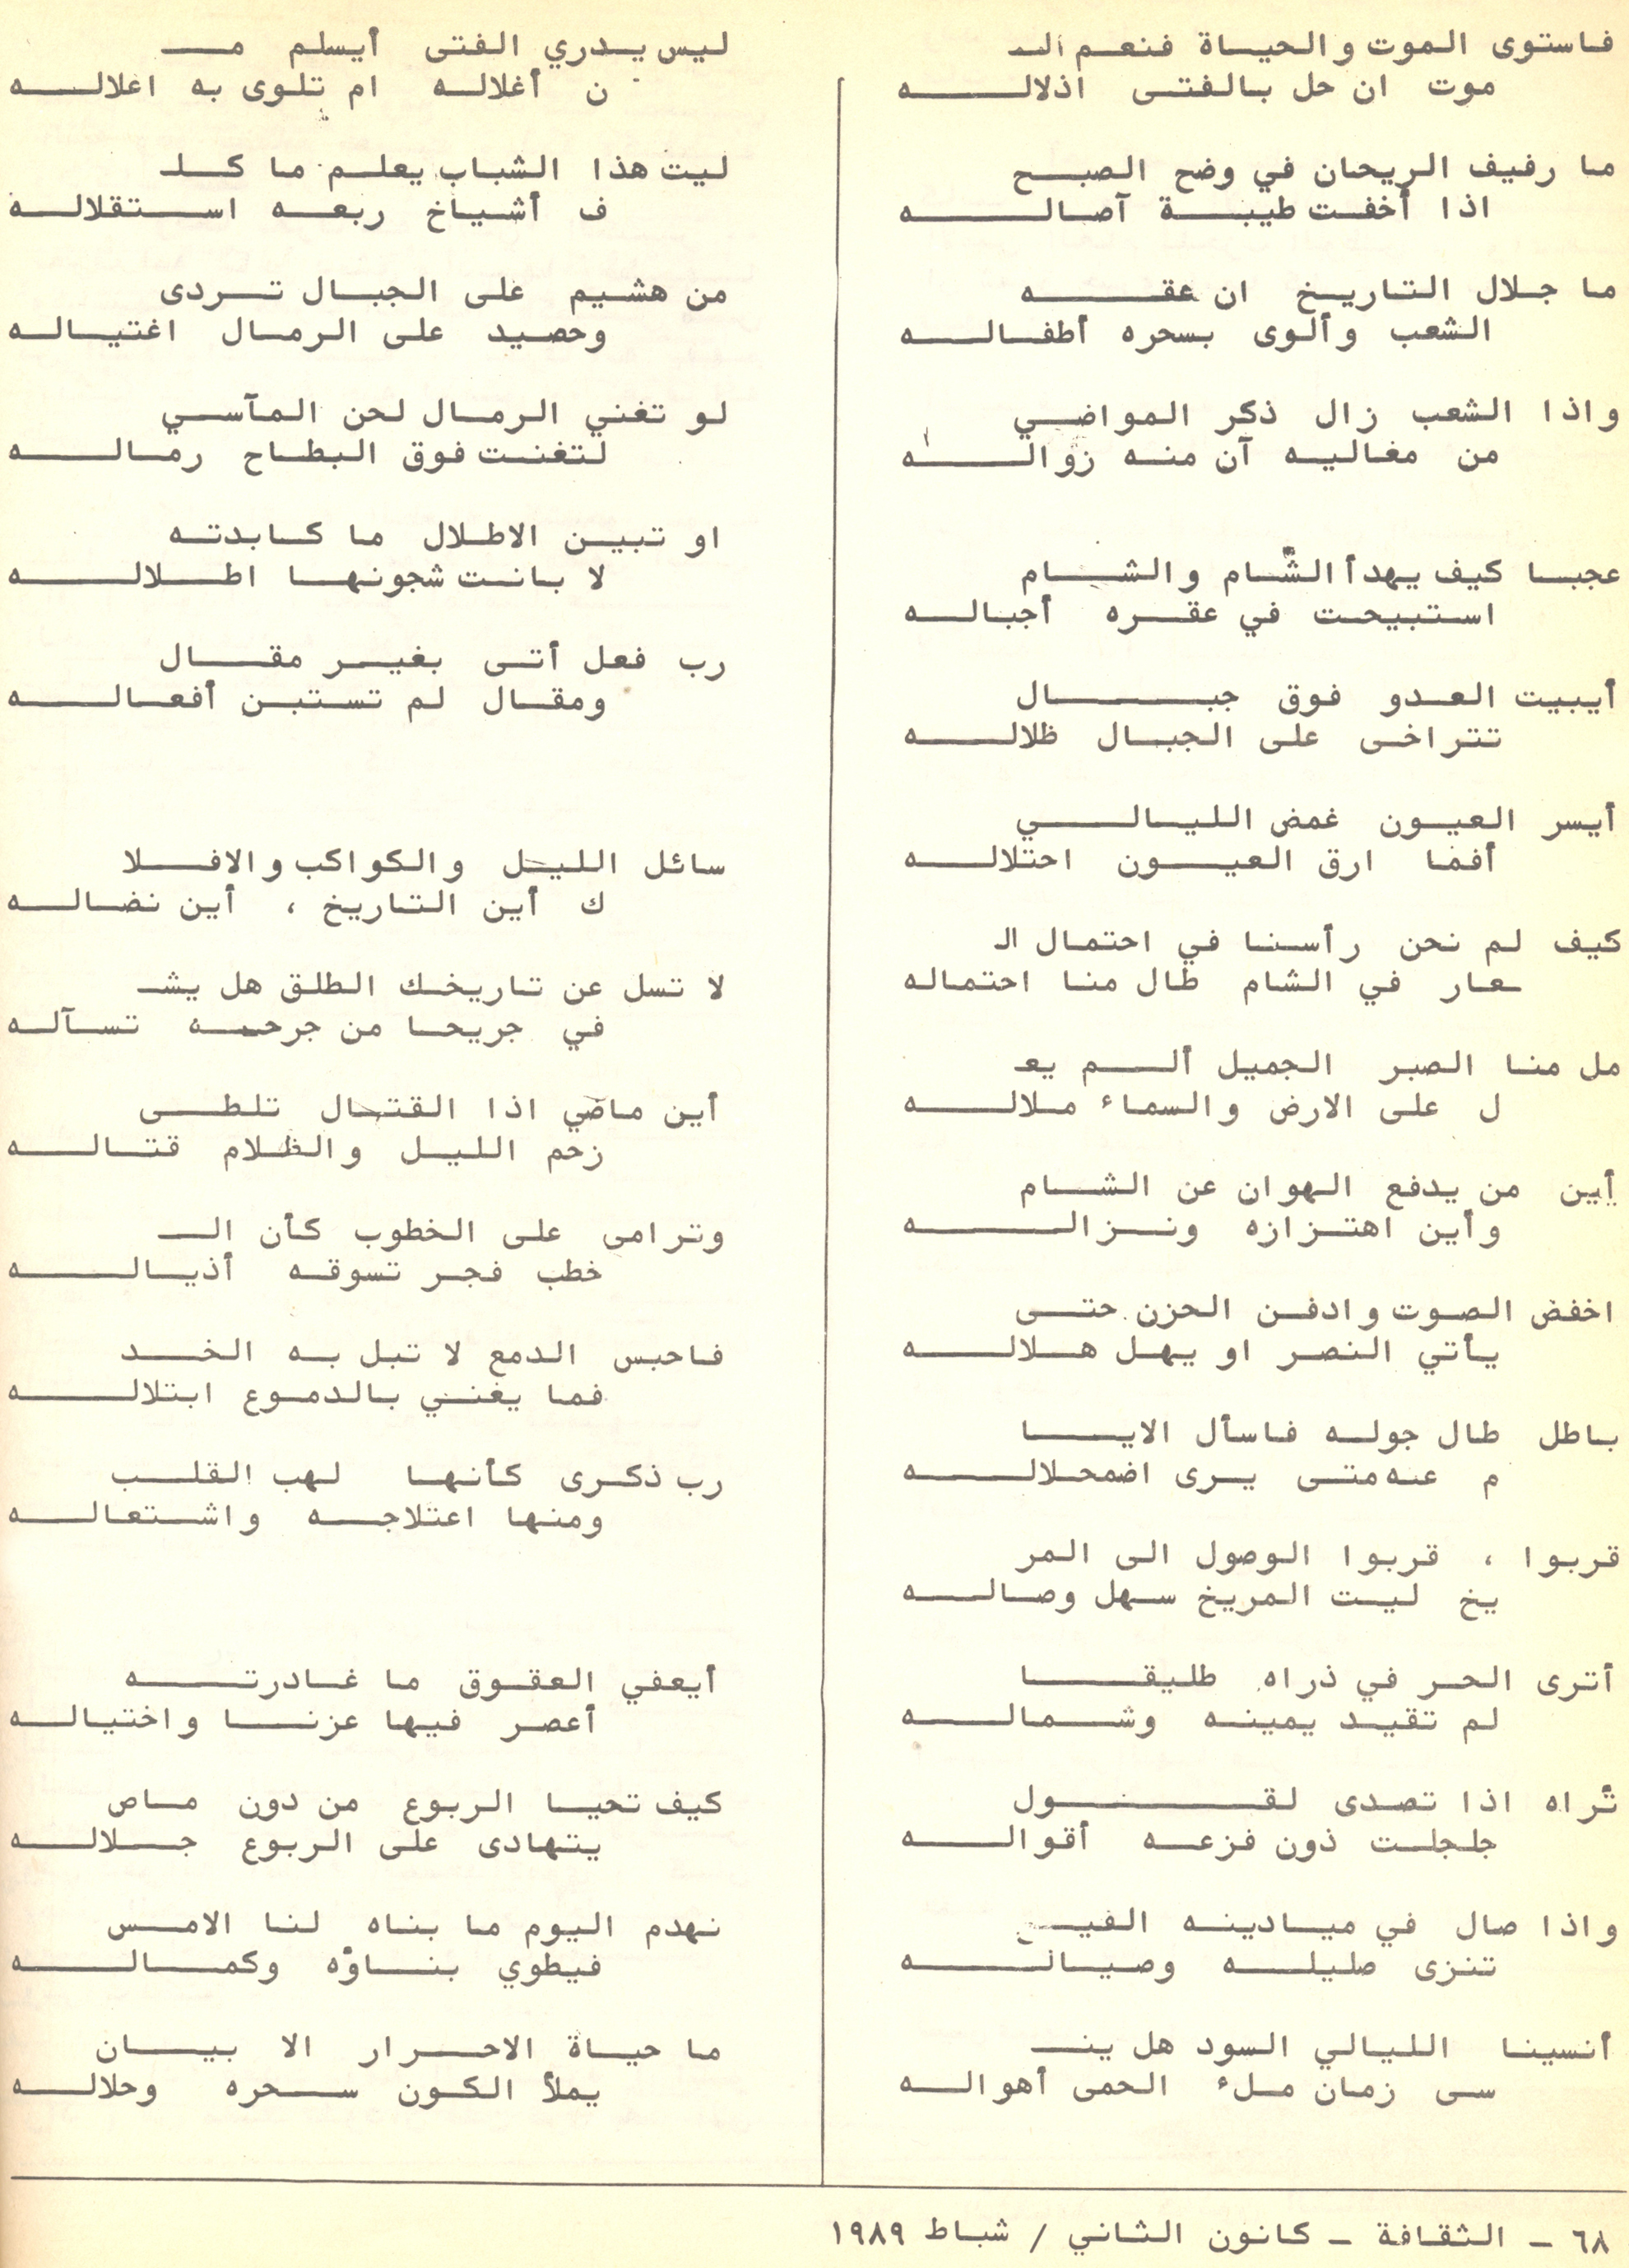 فاستوى الموت والحياة فنعم الـ
موت ان حل بالفتى اذلاله
ما رفيف الريحان في وضح الصبح
اذا أخفت طيبة آصاله
ما جلال التاريخ ان عقه
الشعب وألوى بسحره أطفاله
واذا الشعب زال ذكر المواضي
من مغاليه آن منه زواله
عجبا كيف يهدأ الشام والشام
استبيحت في عقره أجباله
أيبيت العدو فوق جبال
تتراخى على الجبال ظلاله
أيسر العيون غمض الليالي
أفما ارق العيون احتلاله
كيف لم نحن رأسنا في احتمال الـ
ـعار في الشام طال منا احتماله
مل منا الصبر الجميل ألم يعـ
ل على الارض والسماء ملاله
أين من يدفع الهوان عن الشام
وأين اهتزازه ونزاله
اخفض الصوت وادفن الحزن حتى
يأتي النصر او يهل هلاله
باطل طال جوله فاسأل الايا
م عنه متى يرى اضمحلاله
قربوا ، قربوا الوصول الى المر
يخ ليت المريخ سهل وصاله
أترى الحر في ذراه طليقا
لم تقيد يمينه وشماله
تراه اذا تصدى لقول
جلجلت دون فزعه أقواله
واذا صال في ميادينه الفيح
تنزى صليله وصياله
أنسينا الليالي السود هل ينـ
سى زمان ملء الحمى أهواله
ليس يدري الفتى أيسلم مـ
ن أغلاله ام تلوى به اغلاله
ليت هذا الشباب يعلم ما كلـ
ف أشياخ ربعه استقلاله
من هشيم على الجبال تردى
وحصيد على الرمال اغتياله
لو تغني الرمال لحن المآسي
لتغنت فوق البطاح رماله
او تبين الاطلال ما كابدته
لا بانت شجونها اطلاله
رب فعل أتى بغير مقال
ومقال لم تستبن أفعاله
سائل الليل والكواكب والافلا
ك أين التاريخ ، أين نضاله
لا تسل عن تاريخك الطلق هل يشـ
في جريحا من جرحه تسآله
أين ماضي اذا القتال تلظى
زحم الليل والظلام قتاله
وترامى على الخطوب كأن الـ
خطب فجر تسوقه أذياله
فاحبس الدمع لا تبل به الخد
فما يغني بالدموع ابتلاله
رب ذكرى كأنها لهب القلب
ومنها اعتلاجه واشتعاله
أيعفي العقوق ما غادرته
أعصر فيها عزنا واختياله
كيف تحيا الربوع من دون ماض
يتهادى على الربوع جلاله
نهدم اليوم ما بناه لنا الامس
فيطوي بناؤه وكماله
ما حياة الاحرار الا بيان
يملأ الكون سحره وحلاله
٦٨ - الثقافة - كانون الثاني / شباط ١٩٨٩